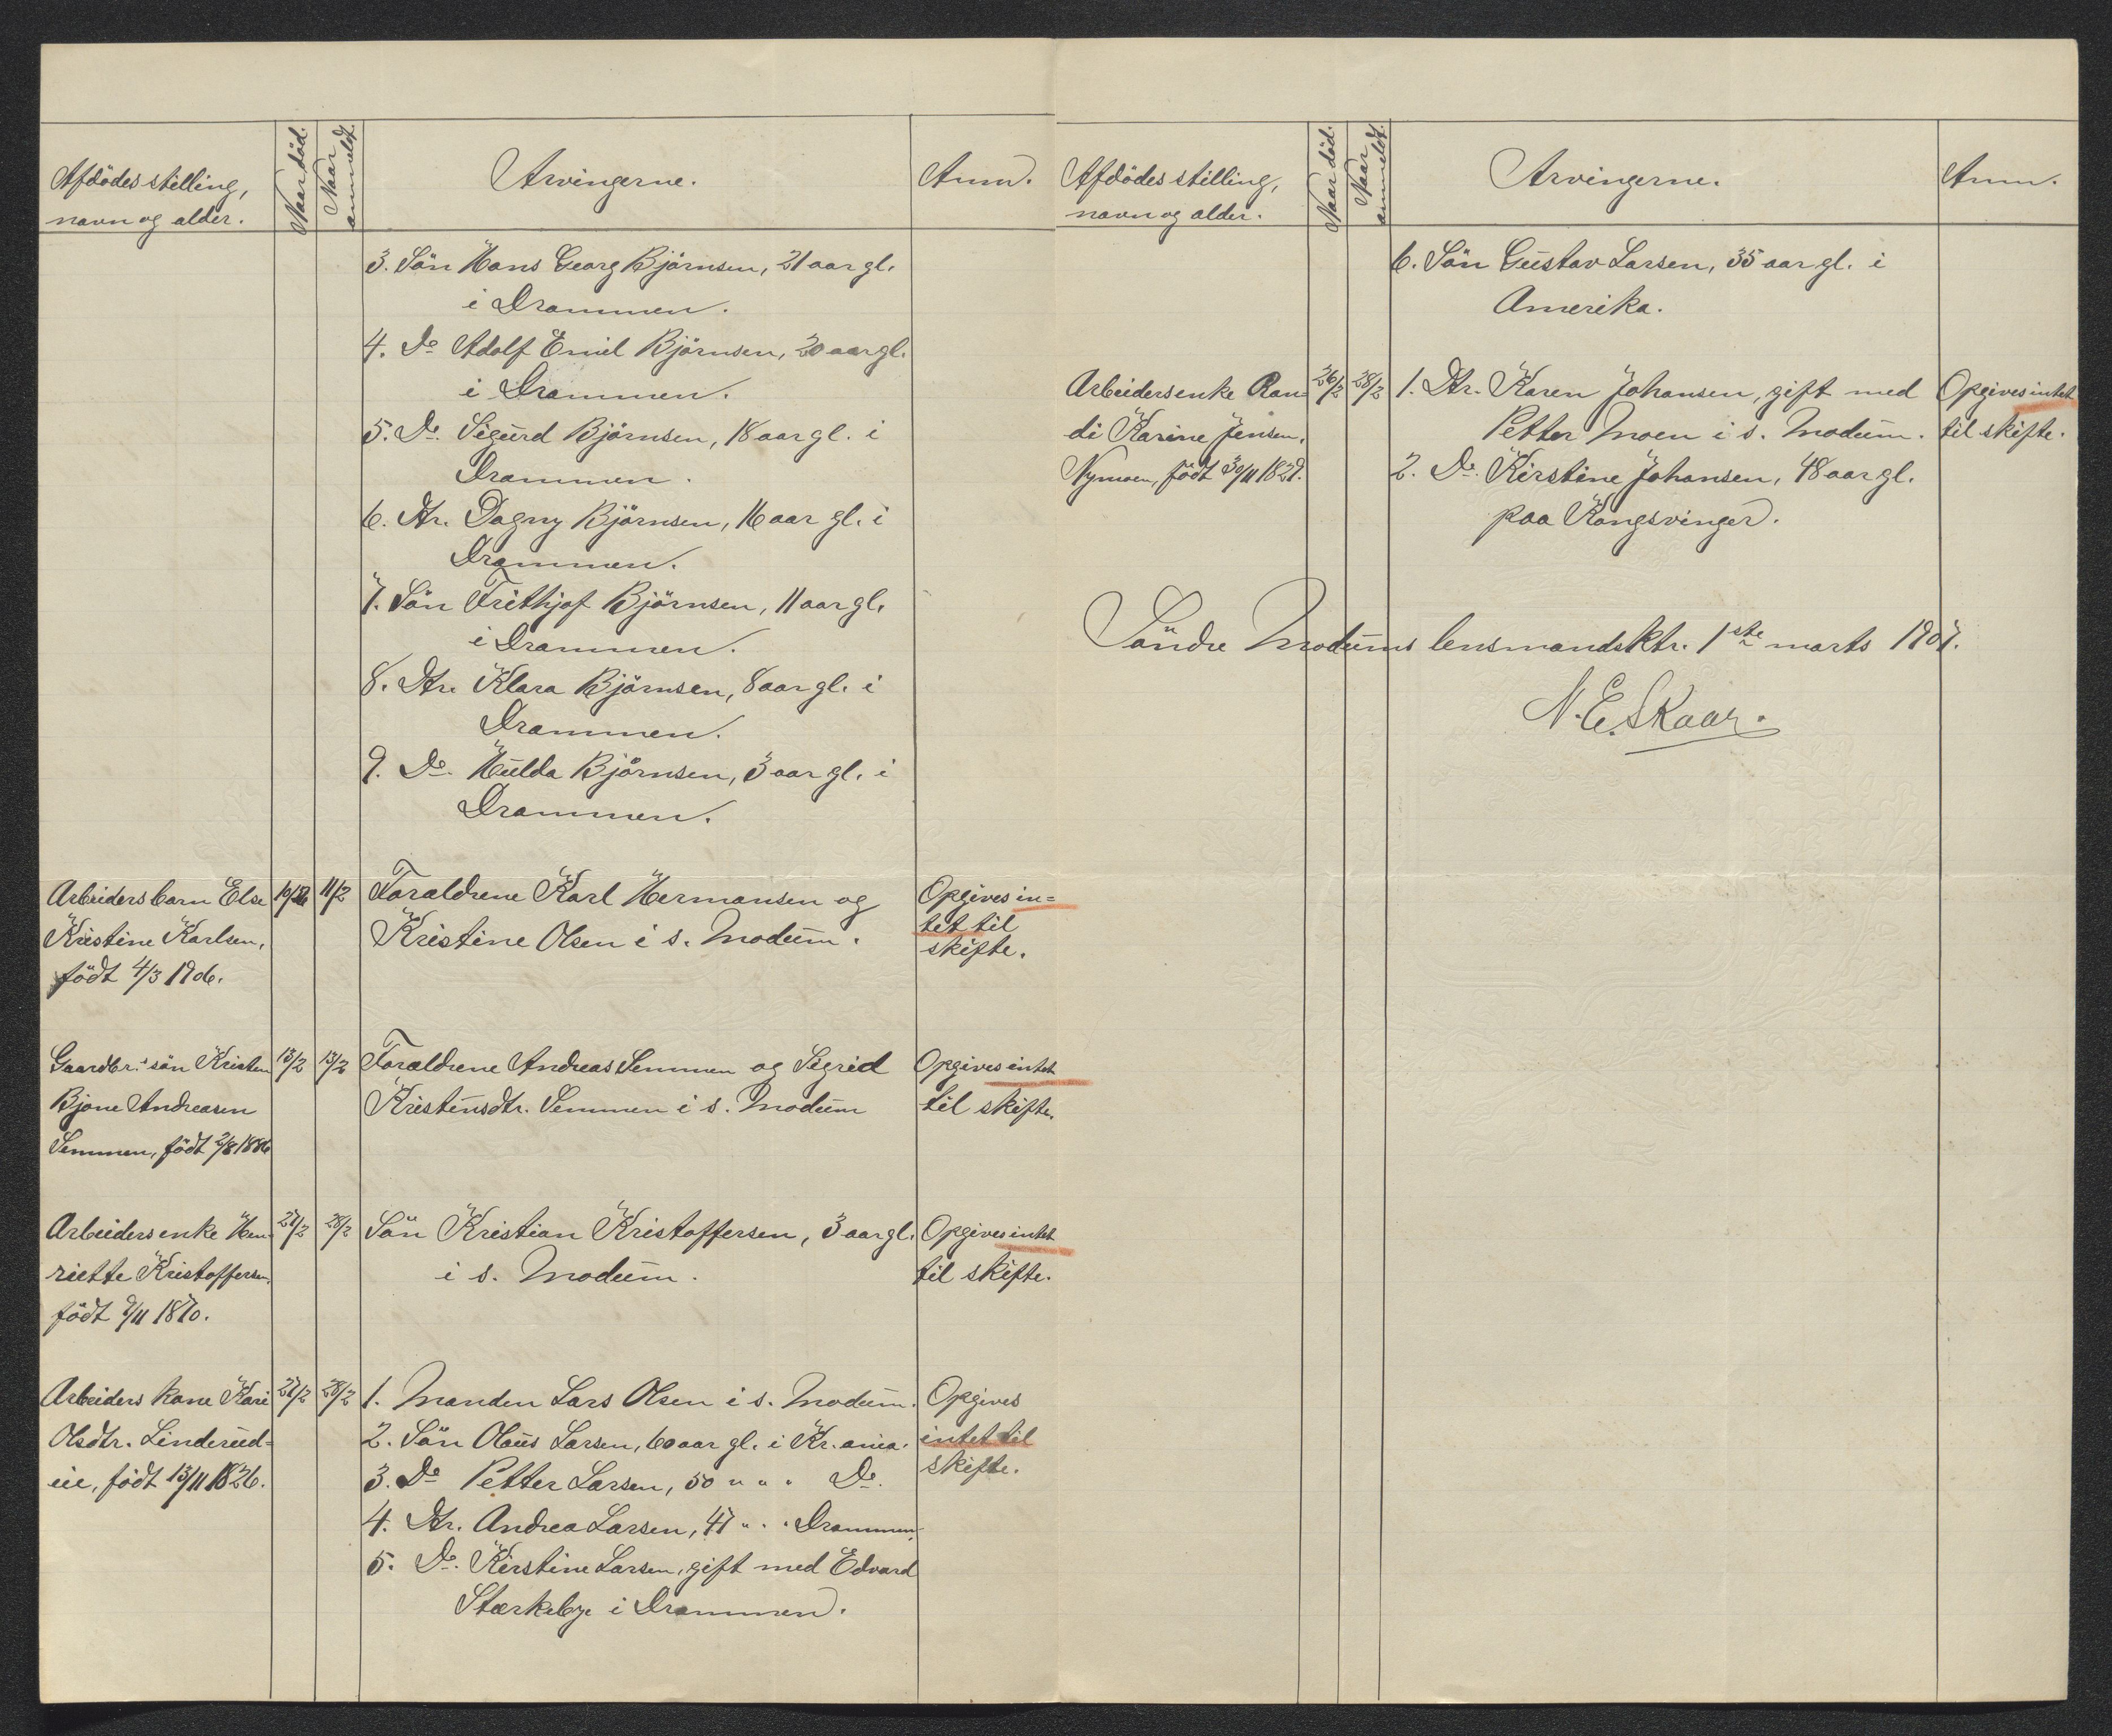 Afdödes stilling,
navn og alder.
Naar död.
Naar
anmeldt.
Arvingerne.
Anm.
3. Sön Hans Georg Björnsen, 21 aar gl.
i Drammen.
4. Do Adolf Emil Björnsen, 20 aar gl.
i Drammen.
5. Do. Sigurd Björnsen, 18 aar gl. i
Drammen.
6. Dtr. Dagny Björnsen, 16 aar gl. i
Drammen.
7. Sön Frithjof Björnsen, 11 aar gl.
i Drammen.
8. Dtr. Klara Björnsen, 8 aar gl. i
Drammen.
9. Do. Hulda Björnsen, 3 aar gl. i
Drammen.
Arbeidersbarn Else 11/2 Foraldrene Karl Hermansen og Opgives in=
Kristine Karlsen, Kristine Olsen i s. Modum. tet til
født 4/3 1906. skifte.
Gaardbr. sön Kristen 13/2 13/2 Foraldrene Andreas Semmen og Sigrid Opgives intet
Bjone Andreasen Kristensdtr. Semmen i s. Modum til skifte.
Semmen, født 2/8 1886
Arbeidersenke Hen- 27/2 28/2 Sön Kristian Kristoffersen, 3 aar gl. Opgives intet
riette Kristoffersen, i s. Modum. til skifte.
født 9/11 1870.
Arbeiders kone Kari 27/2 28/2 1. Manden Lars Olsen i s. Modum. Opgives
Olsdtr. Linderud- 2. Sön Olaus Larsen, 60 aar gl. i Kr.ania. intet til
eie, født 13/11 1826. 3. Do Petter Larsen, 50 " " " Do. skifte.
4. Dtr. Andrea Larsen, 47 " " " Drammen.
5. Do. Kirstine Larsen, gift med Edvard
Stærkeby i Drammen.
Afdödes stilling,
navn og alder.
Naar död.
Naar
anmeldt.
Arvingerne.
Anm.
6. Sön Gustav Larsen, 35 aar gl. i
Amerika.
Arbeidersenke Ran- 26/2 28/2 1. Dtr. Karen Johansen, gift med Opgives intet
di Karine Jensen, Petter Moen i s. Modum. til skifte.
Nymoen, født 30/11 1829. 2. Do. Kirstine Johansen, 48 aar gl.
paa Kongsvinger.
Söndre Modums lensmandsktr. 1ste marts 1907.
N. E. Skaar.